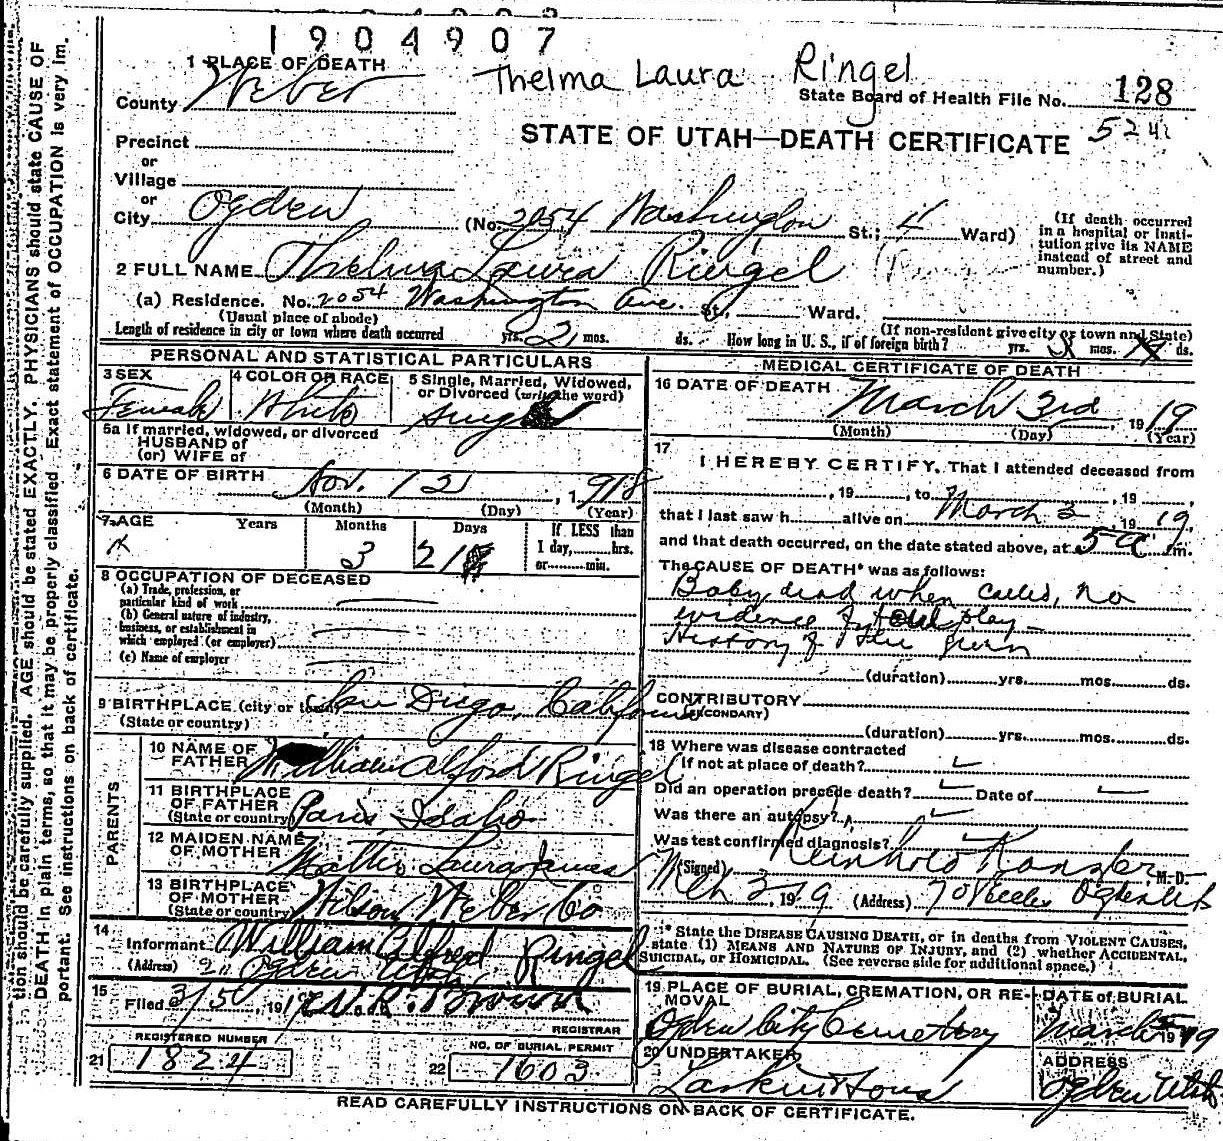 1904907
Thelma Laura Ringel
1 PLACE OF DEATH
County Weber
State Board of Health File No. 128
5241
STATE OF UTAH—DEATH CERTIFICATE
Precinct
or
Village
or
City Ogden (No. 2054 Washington St.; 4 Ward)
(If death occurred in a hospital or institution give its NAME instead of street and number.)
2 FULL NAME Thelma Laura Ringel
(a) Residence. No. 2054 Washington Ave. St. Ward.
(Usual place of abode) (If non-resident give city or town and State)
Length of residence in city or town where death occurred yrs. 2 mos. ds. How long in U. S., if of foreign birth? yrs. mos. ds.
PERSONAL AND STATISTICAL PARTICULARS
3 SEX Female
4 COLOR OR RACE White
5 Single, Married, Widowed, or Divorced (write the word) Single
5a If married, widowed, or divorced
HUSBAND of
(or) WIFE of
6 DATE OF BIRTH Nov. 12, 1918
(Month) (Day) (Year)
7 AGE Years Months Days If LESS than
1 day, hrs.
or min.
3 21
8 OCCUPATION OF DECEASED
(a) Trade, profession, or
particular kind of work
(b) General nature of industry,
business, or establishment in
which employed (or employer)
(c) Name of employer
9 BIRTHPLACE (city or San Diego, California
(State or country)
PARENTS
10 NAME OF FATHER William Alford Ringel
11 BIRTHPLACE OF FATHER (State or country) Paris Idaho
12 MAIDEN NAME OF MOTHER Mattie Laura James
13 BIRTHPLACE OF MOTHER (State or country) Wilson Weber Co
14
Informant William Alfred Ringel
(Address) Ogden Utah
15
Filed 3/5, 1919 Brown
REGISTRAR
REGISTERED NUMBER
21 1824
NO. OF BURIAL PERMIT
22 1603
MEDICAL CERTIFICATE OF DEATH
16 DATE OF DEATH March 3rd, 1919
(Month) (Day) (Year)
17
I HEREBY CERTIFY, That I attended deceased from
, 19 , to March 3 , 19 ,
that I last saw h alive on , 19 19,
and that death occurred, on the date stated above, at 5 a m.
The CAUSE OF DEATH* was as follows:
Baby dead when called, no
evidence of foul play—
History of given
(duration) yrs. mos. ds.
CONTRIBUTORY
(SECONDARY)
(duration) yrs. mos. ds.
18 Where was disease contracted
If not at place of death?
Did an operation precede death? Date of
Was there an autopsy?
Was test confirmed diagnosis?
(Signed) Reinhold Kanzler M. D.
Mch 3, 1919 (Address) Ogden Utah
* State the DISEASE CAUSING DEATH, or in deaths from VIOLENT CAUSES,
state (1) MEANS AND NATURE OF INJURY, and (2) whether ACCIDENTAL,
SUICIDAL, or HOMICIDAL. (See reverse side for additional space.)
19 PLACE OF BURIAL, CREMATION, OR REMOVAL
Ogden City Cemetery
DATE of BURIAL
March 5 1919
20 UNDERTAKER
Larkin & Sons
ADDRESS
Ogden Utah
READ CAREFULLY INSTRUCTIONS ON BACK OF CERTIFICATE.
tion should be carefully supplied. AGE should be stated EXACTLY. PHYSICIANS should state CAUSE OF
DEATH in plain terms, so that it may be properly classified. Exact statement of OCCUPATION is very im-
portant. See instructions on back of certificate.